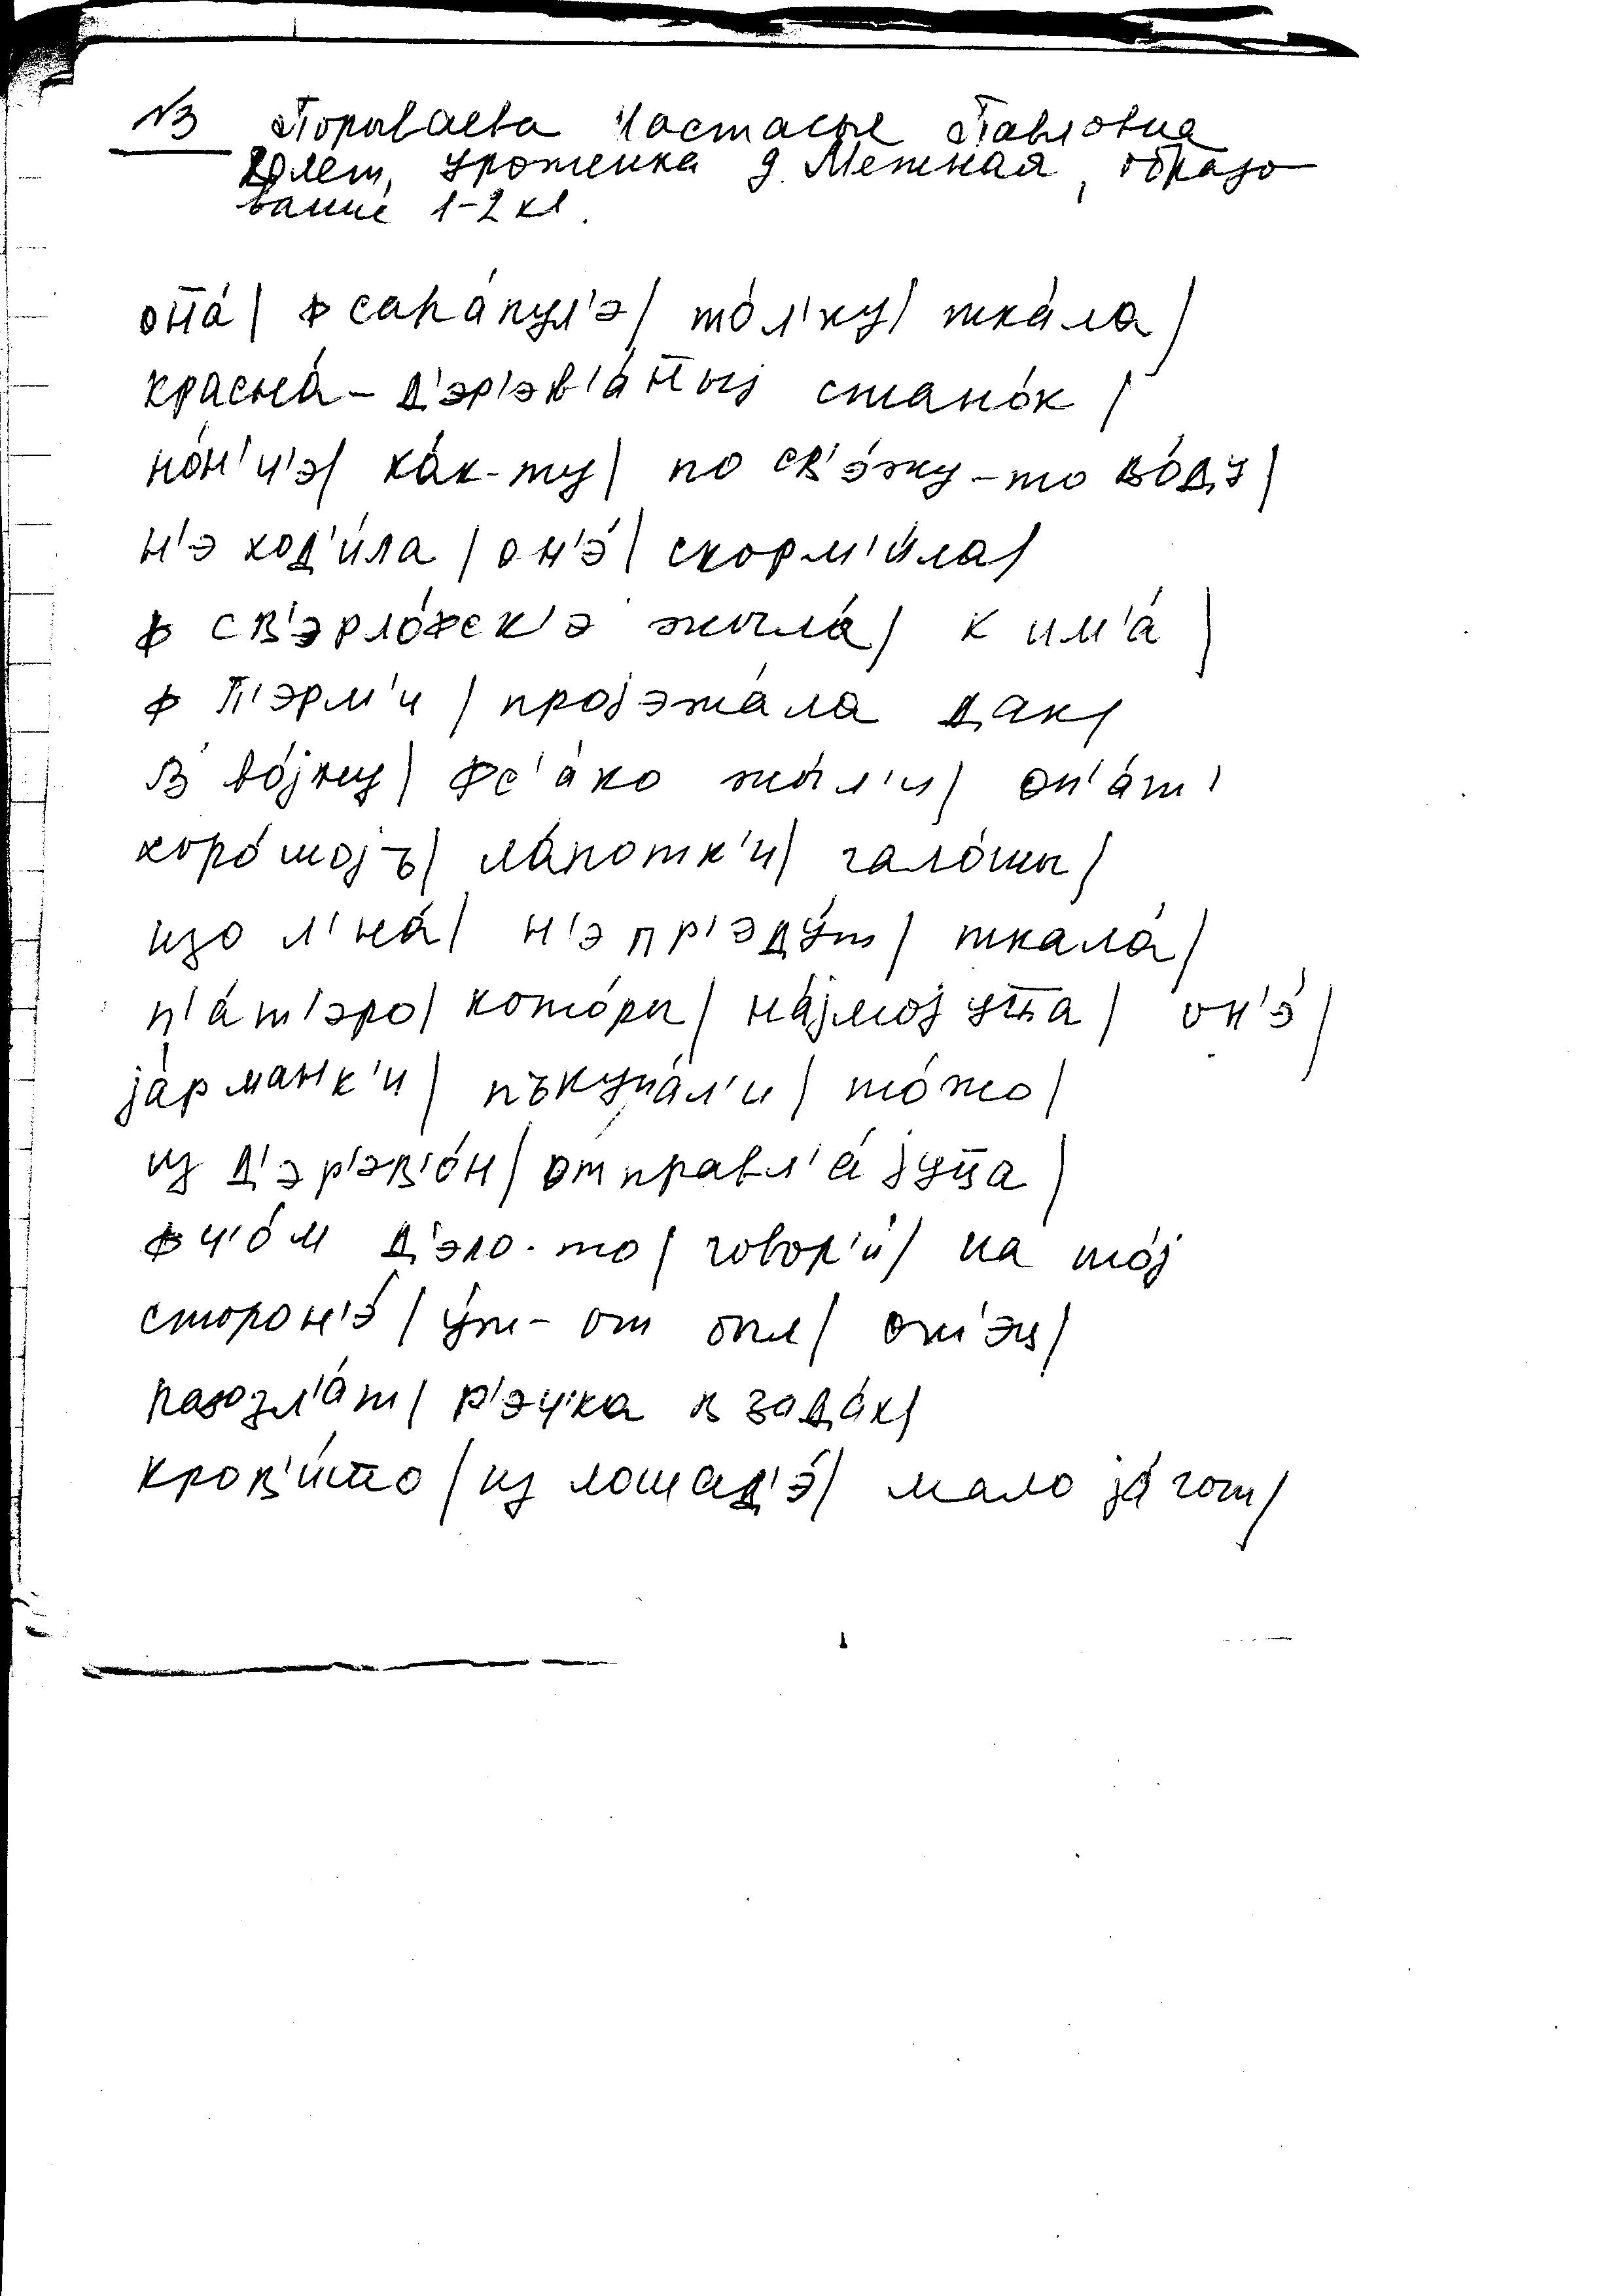 №3 Порываева Настасья Павловна
80 лет, уроженка д. Межная, образо
вание 1-2 кл.
она́ | ф сара́пул'э | то́л'ку | тка́ла |
красна́ - д'эр'эв'а́н̄ыj стано́к |
но́н'ч'э | ка́к-ту | по св'э́жу-то во́ду |
н'э ход'и́ла | он'э́ | скорм'и́ла |
ф св'эрло́фск'э жыла́ | к им'а́ |
ф п'эрм'и | проjэжа́ла дак |
в во́jну | фс'а́ко жы́л'и | оп'а́т'
хоро́шоj-ъ | ла́потк'и | гало́шы |
изо л'на́ | н'э пр'эду́т | ткала́ |
п'а́т'эро | кото́ры | на́jмоjуц̄а | он'э́ |
jа́рманк'и | пъкупа́л'и | то́жо |
из д'эр'эв'о́н | отправл'а́jуц̄а |
ф ч'о́м д'эло-то | говор'и́ | на то́j
сторон'э́ | у́ж-от был | от'эц |
р'э́ч'ка в зада́х |
из лошад'э́ | мало jа́гот |